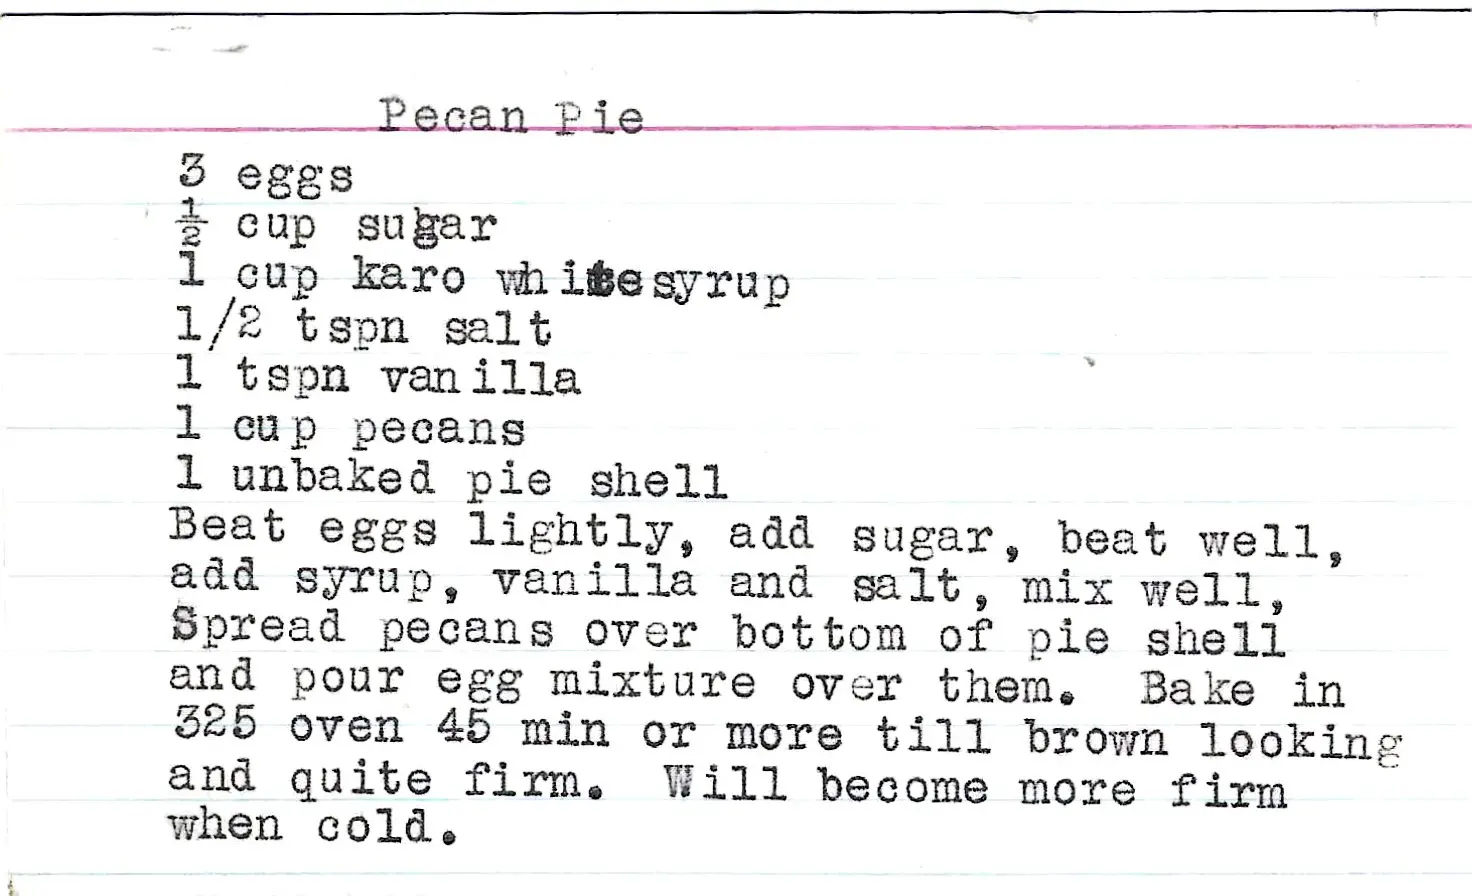 Pecan Pie
3 eggs
½ cup sugar
1 cup karo white syrup
1/2 tspn salt
1 tspn vanilla
1 cup pecans
1 unbaked pie shell
Beat eggs lightly, add sugar, beat well,
add syrup, vanilla and salt, mix well,
Spread pecans over bottom of pie shell
and pour egg mixture over them. Bake in
325 oven 45 min or more till brown looking
and quite firm. Will become more firm
when cold.